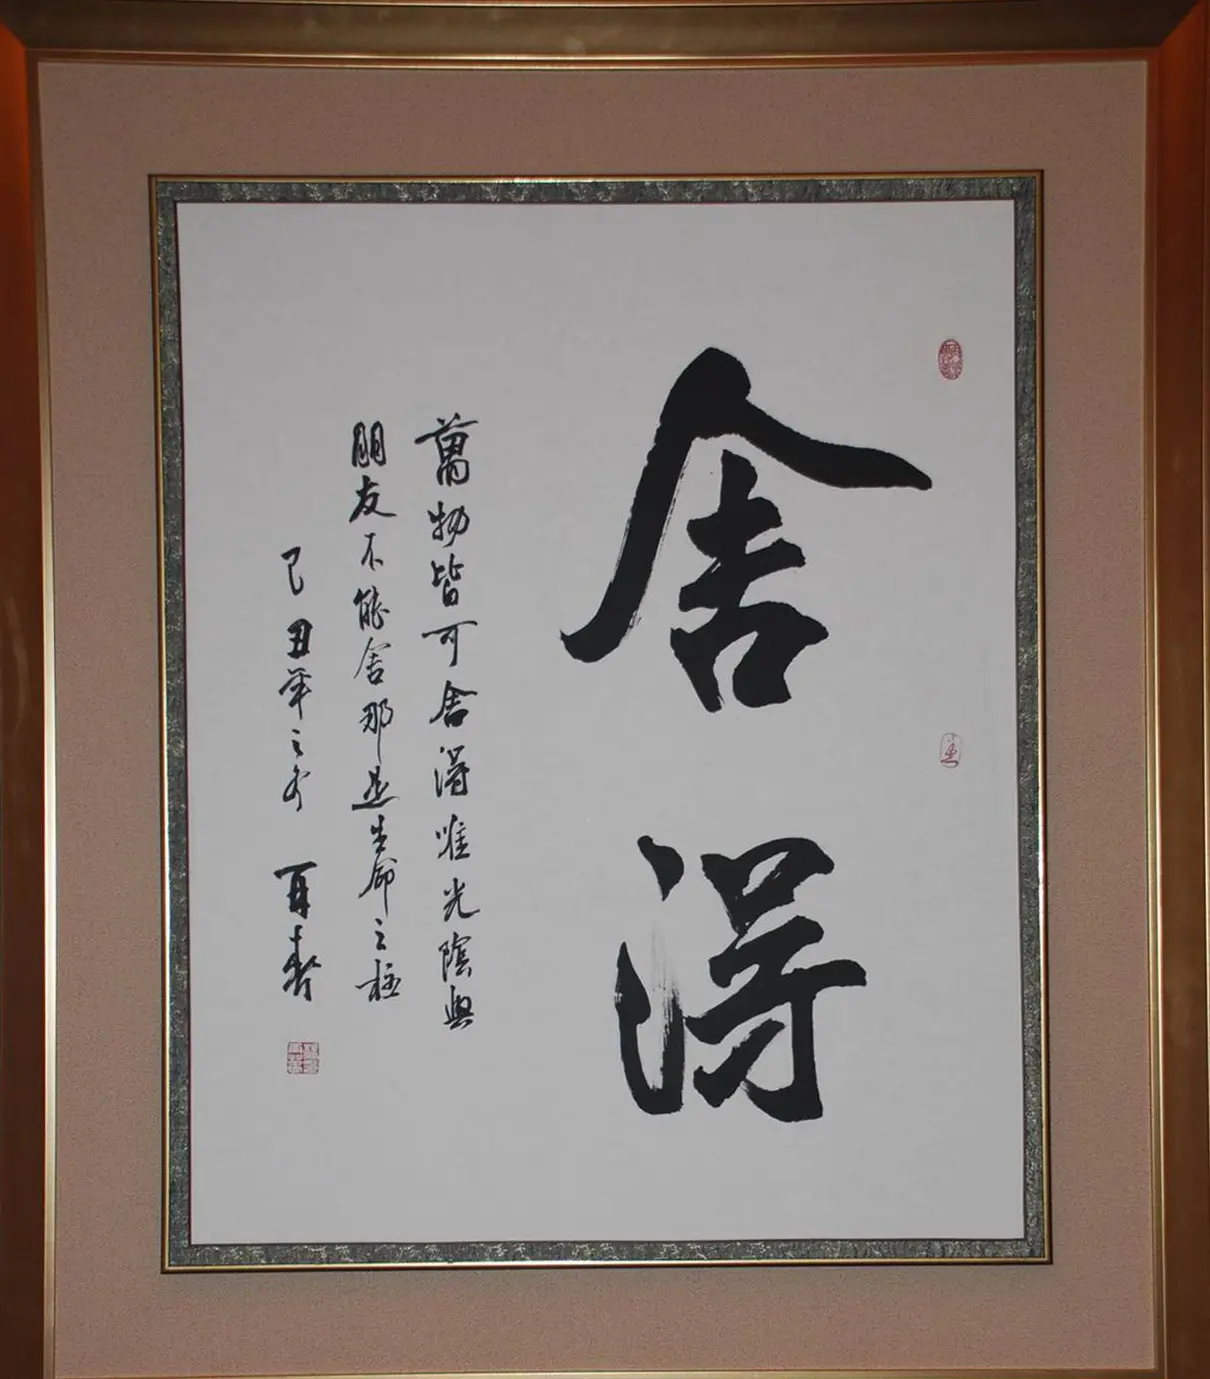 舍得
萬物皆可舍得唯光陰與
朋友不能舍那是生命之柱
己丑年之冬